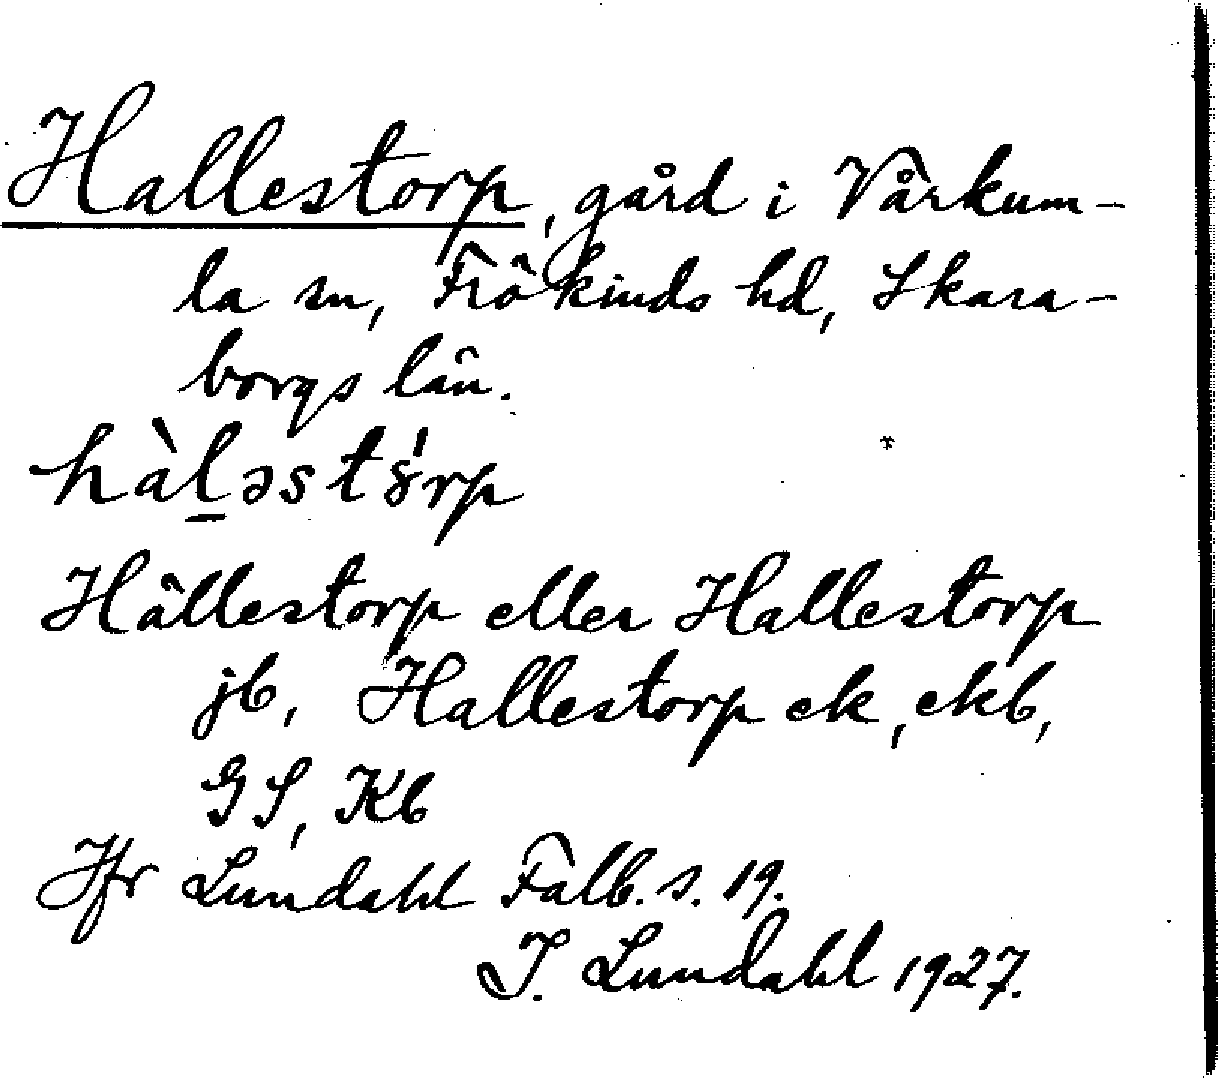 Hallestorp, gård i Vårkum-
la sn, Frökinds hd, Skara-
borgs län.
hàl̠əstȣ̍rp
Hällestorp eller Hallestorp
jb, Hallestorp ek, ekb,
GS, Kb
Jfr Lundahl Falb. s. 19.
I. Lundahl 1927.